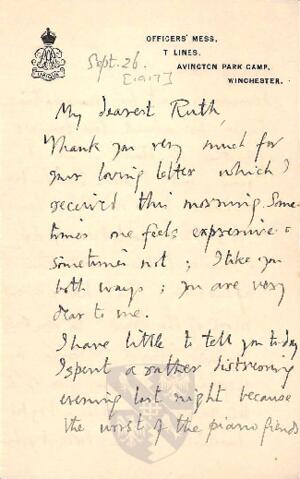 OFFICERS' MESS,
T LINES,
AVINGTON PARK CAMP,
WINCHESTER.
Sept. 26.
[1917]
My dearest Ruth,
Thank you very much for
your loving letter which I
received this morning. Some-
times one feels expressive &
sometimes not; I like you
both ways; you are very
dear to me.
I have little to tell you today
I spent a rather distressing
evening last night because
the worst of the piano fiends